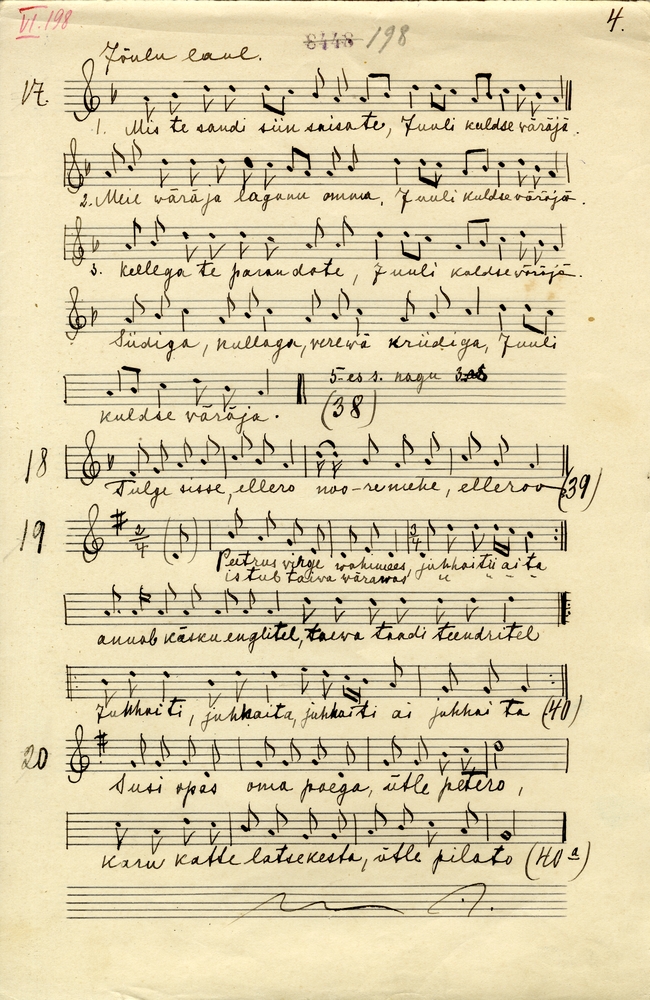 VI. 198
4.
198
Jõulu laul.
17.
1. Mis te sandi siin saisate, Juuli kuldse väräjä.
2. Meie wäräja lagunu omma, Juuli kuldse väräjä.
3. kellega te parandate, Juuli kuldse väräjä.
Siidiga, kullaga, verewä kriidiga, Juuli
kuldse väräja. (38)
5-es s. nagu
18
Tulge sisse, ellero noo-remehe, elleroo (39)
19
2/4
3/4
Peetrus virge wahimees, juhhaiti ai ta
istub taiva väravas " " " "
annab käsku englitel, taewa taadi teendritel
Juhhaiti, juhkaita, juhkaiti ai juhhai ta (40)
20
Susi opas oma poega, ütle petero,
Karu katte latsekesta, ütle pilato (40 a)